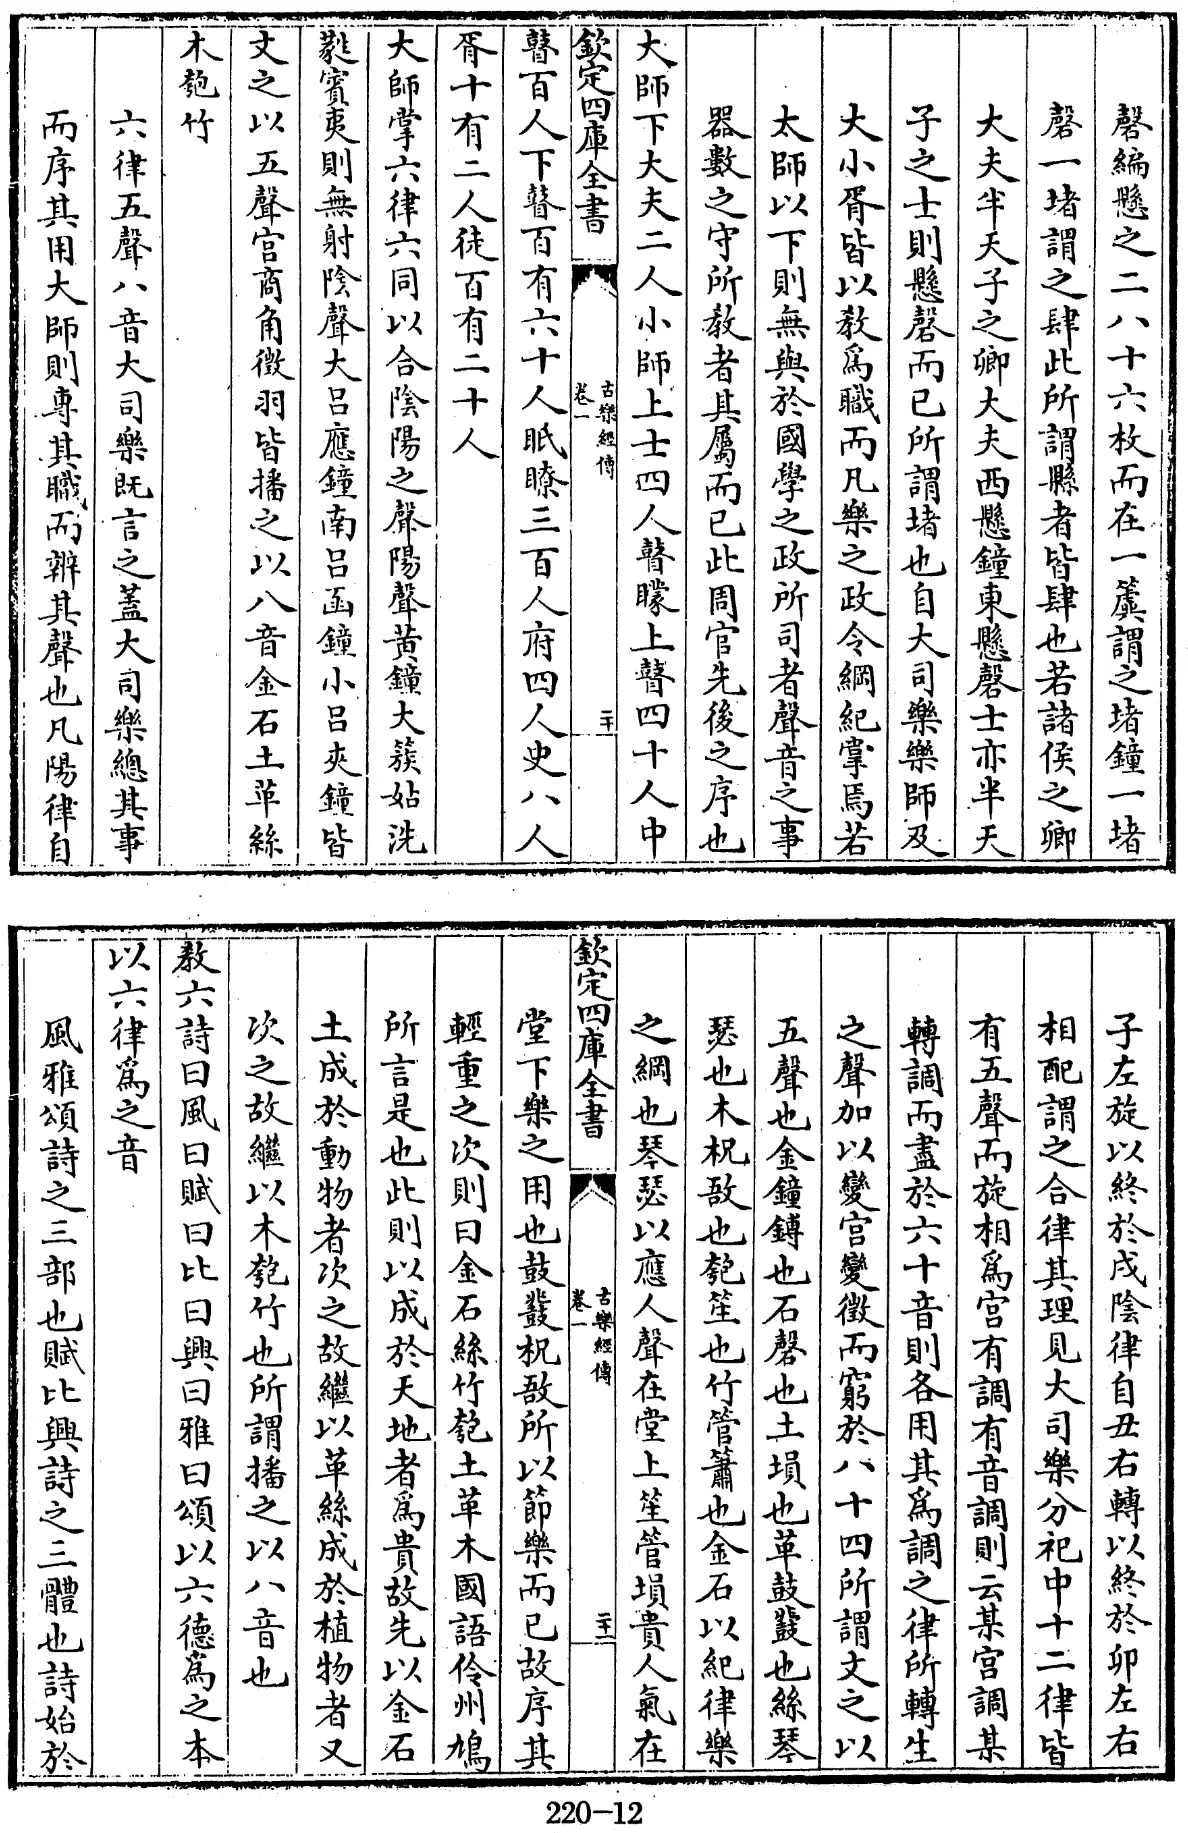 磬編懸之二八十六枚而在一簴謂之堵鐘一堵
磬一堵謂之肆此所謂縣者皆肆也若諸侯之卿
大夫半天子之卿大夫西懸鐘東懸磬士亦半天
子之士則懸磬而已所謂堵也自大司樂樂師及
大小胥皆以教爲職而凡樂之政令綱紀掌焉若
太師以下則無與於國學之政所司者聲音之事
器數之守所教者其屬而已此周官先後之序也
大師下大夫二人小師上士四人瞽矇上瞽四十人中
欽定四庫全書
古樂經傳
卷一
二十
瞽百人下瞽百有六十人眡瞭三百人府四人史八人
胥十有二人徒百有二十人
大師掌六律六同以合陰陽之聲陽聲黄鐘大簇姑洗
蕤賓夷則無射陰聲大呂應鐘南呂函鐘小呂夾鐘皆
文之以五聲宫商角徵羽皆播之以八音金石土革絲
木匏竹
六律五聲八音大司樂既言之蓋大司樂總其事
而序其用大師則專其職而辨其聲也凡陽律自
子左旋以終於戌陰律自丑右轉以終於卯左右
相配謂之合律其理見大司樂分祀中十二律皆
有五聲而旋相爲宫有調有音調則云某宫調某
轉調而盡於六十音則各用其爲調之律所轉生
之聲加以變宫變徵而窮於八十四所謂文之以
五聲也金鐘鎛也石磬也土塤也革鼓鼗也絲琴
瑟也木柷敔也匏笙也竹管簫也金石以紀律樂
之綱也琴瑟以應人聲在堂上笙管塤貴人氣在
欽定四庫全書
古樂經傳
卷一
二十一
堂下樂之用也鼓鼗柷敔所以節樂而已故序其
輕重之次則曰金石絲竹匏土革木國語伶州鳩
所言是也此則以成於天地者爲貴故先以金石
土成於動物者次之故繼以革絲成於植物者又
次之故繼以木匏竹也所謂播之以八音也
教六詩曰風曰賦曰比曰興曰雅曰頌以六德爲之本
以六律爲之音
風雅頌詩之三部也賦比興詩之三體也詩始於
220-12